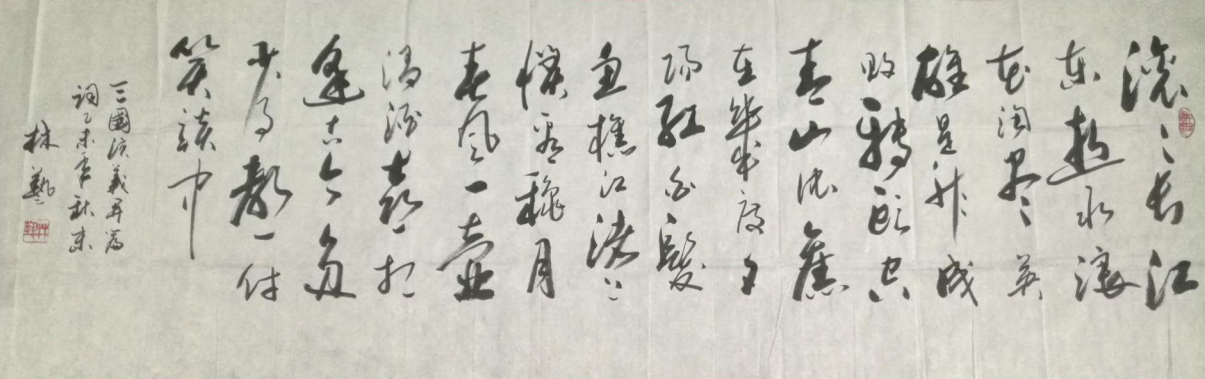 滚滚长江
东逝水浪
花淘尽英
雄是非成
败转头空
青山依舊
在幾度夕
阳红白髮
渔樵江渚上
惯看秋月
春风一壶
浊酒喜相
逢古今多
少事都付
笑谈中
三國演義开篇
词乙未年秋末
林藝